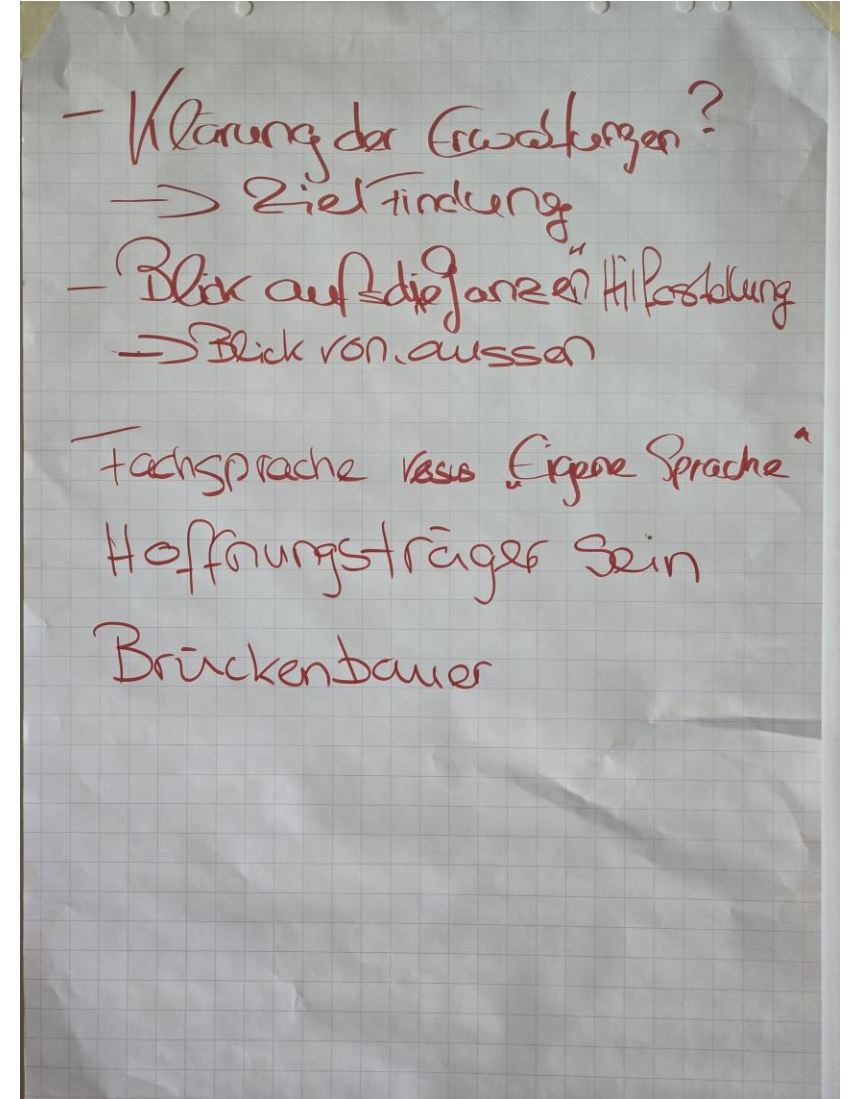 - Klärung der Erwartungen?
→ Zielfindung
- Blick auf die ganzen" Hilfestellung
→ Blick von aussen
Fachsprache versus „Eigene Sprache"
Hoffnungsträger Sein
Brückenbauer